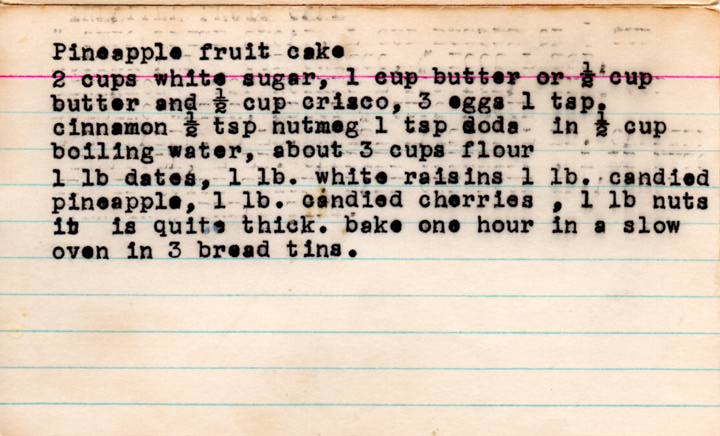 Pineapple fruit cake
2 cups white sugar, 1 cup butter or ½ cup
butter and ½ cup crisco, 3 eggs 1 tsp.
cinnamon ½ tsp nutmeg 1 tsp doda in ½ cup
boiling water, about 3 cups flour
1 lb dates, 1 lb. white raisins 1 lb. candied
pineapple, 1 lb. candied cherries , 1 lb nuts
it is quite thick. bake one hour in a slow
oven in 3 bread tins.